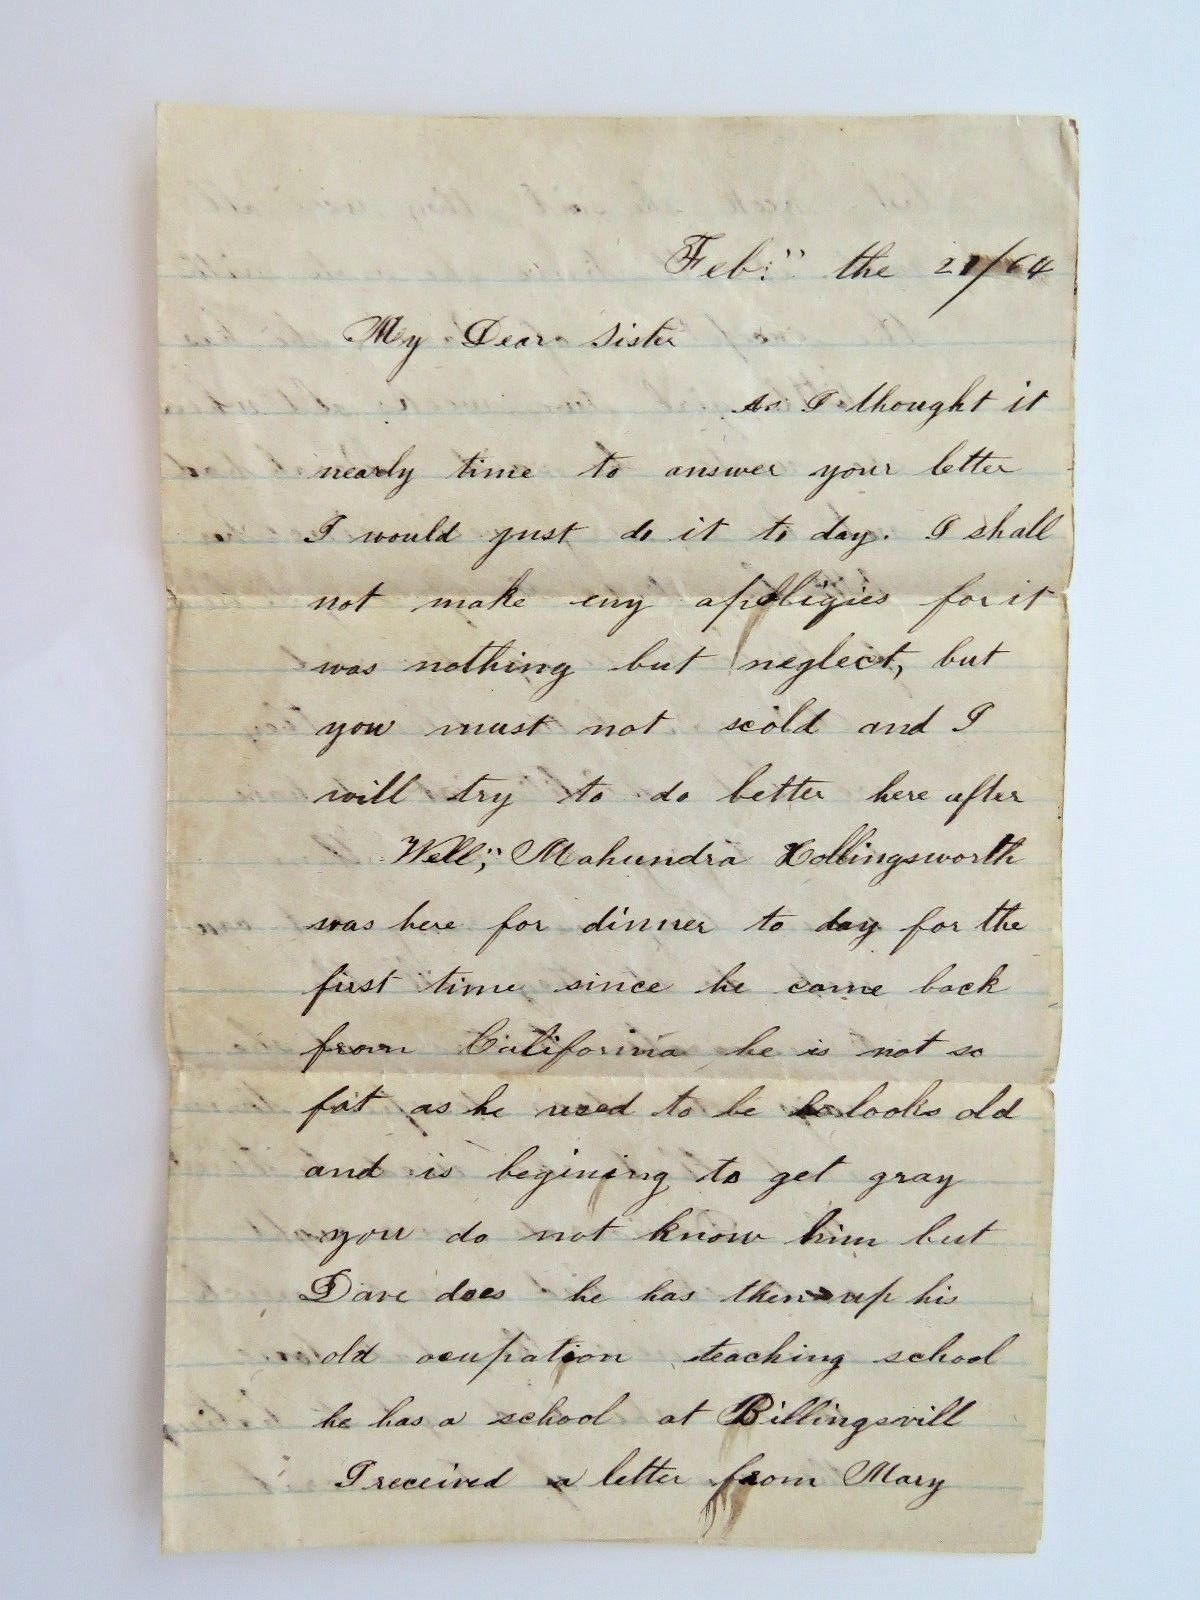 Feb;" the 21/64
My Dear Sister
As I thought it
nearly time to answer your letter
I would just do it to day. I shall
not make eny apoligies for it
was nothing but neglect, but
you must not scold and I
will try to do better here after
Well;" Mahundra Hollingsworth
was here for dinner to day for the
first time since he came back
from California he is not so
fat as he used to be he looks old
and is begining to get gray
you do not know him but
Dave does he has then up his
old ocupation teaching school
he has a school at Billingsvill
I received a letter from Mary